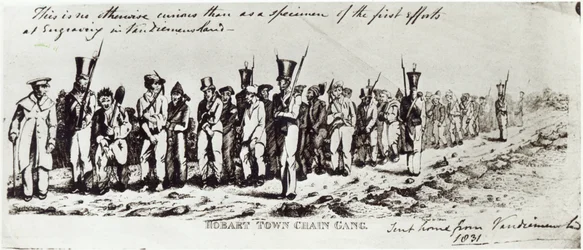 This is no otherwise curious than as a specimen of the first efforts
at Engraving in Van Diemens Land —
HOBART TOWN CHAIN GANG.
Sent home from Vandiemens
1831